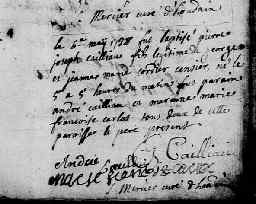 Mercier curé d'houdain
le 6me may 1728 fut baptisé pierre
joseph cailliau fils legitime de
et jeanne marie cordier censier né le
5 a 5 heures du matin fut parain
andré cailliau et maraine marie
francoise carlot tous deux de cette
paroisse le pere present
Andrie Caill Cailliau
marie francoise
Mercier curé d'houdain